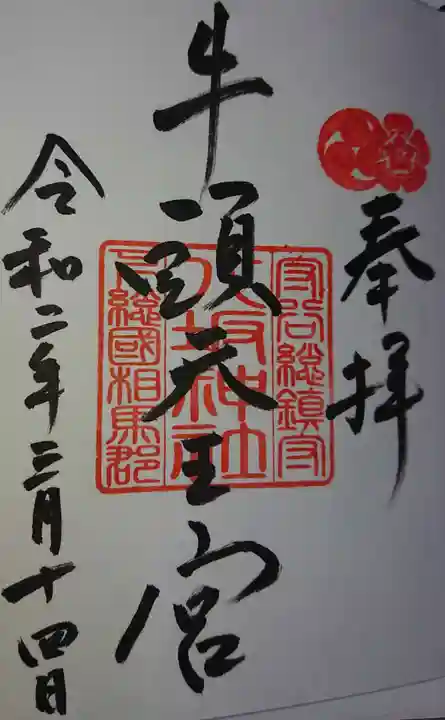 奉拝
牛頭天王宮
守谷総鎮守
八坂神社
下総國相馬郡
令和二年三月十四日